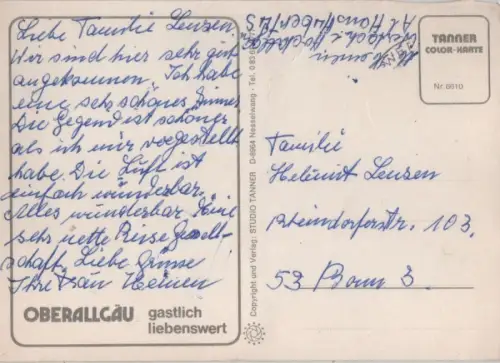 Liebe Familie Lenzen.
Wir sind hier sehr gut
angekommen. Ich habe
eine sehr schönes Zimmer
Die Gegend ist schöner
als ich mir vorgestellt
habe. Die Luft ist
einfach wunderbar.
Alles wunderbar. Eine
sehr nette Reise Gesell-
schaft. Liebe Grüsse
Ihre Frau Heinen
OBERALLGÄU
gastlich
liebenswert
Copyright und Verlag: STUDIO TANNER D-8964 Nesselwang · Tel. 0 83
TANNER
COLOR-KARTE
Nr. 8610
Familie
Helmut Lenzen
Rheindorferstr. 103.
53 Bonn 3.